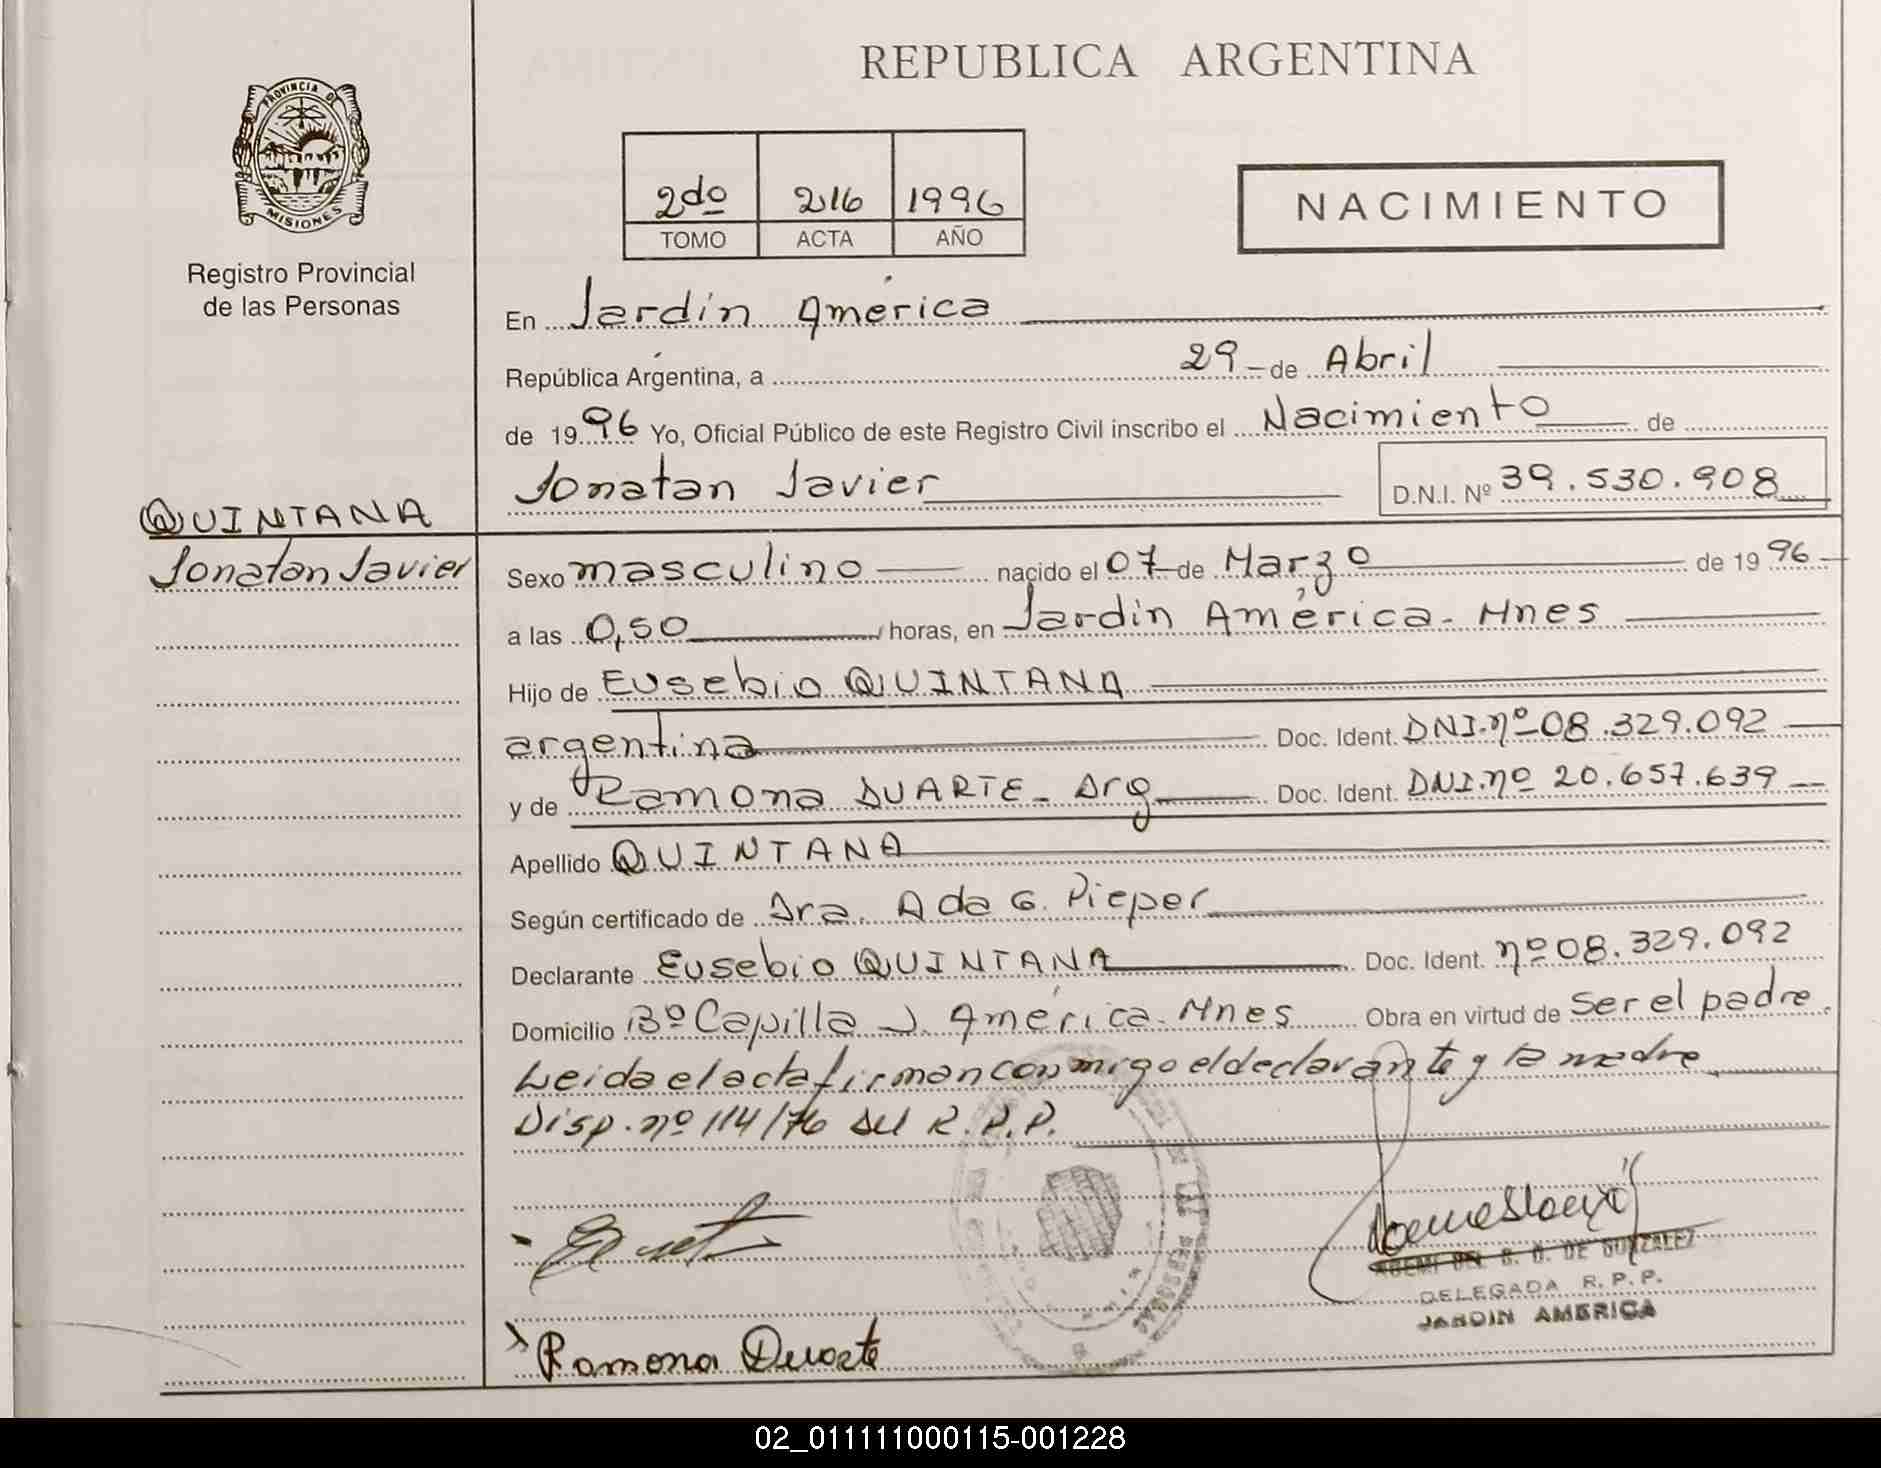 REPUBLICA ARGENTINA
PROVINCIA DE
MISIONES
Registro Provincial
de las Personas
2do 216 1996
TOMO ACTA AÑO
NACIMIENTO
En Jardín América
República Argentina, a 29 de Abril
de 1996 Yo, Oficial Público de este Registro Civil inscribo el Nacimiento de
Jonatan Javier D.N.I. Nº 39.530.908
QUINTANA
Jonatan Javier
Sexo masculino nacido el 07 de Marzo de 1996
a las 0,50 horas, en Jardín América - Mnes
Hijo de Eusebio QUINTANA
argentina Doc. Ident. DNI. nº 08.329.092
y de Ramona DUARTE - Arg Doc. Ident. DNI. nº 20.657.639
Apellido QUINTANA
Según certificado de Dra. Ada G. Pieper
Declarante Eusebio QUINTANA Doc. Ident. nº 08.329.092
Domicilio Bº Capilla J. América - Mnes Obra en virtud de Ser el padre.
Leida el acta firman conmigo el declarante y la madre
Disp. nº 114/76 del R.P.P.
DE GONZALEZ
DELEGADA R.P.P.
JARDIN AMERICA
Ramona Duarte
02_011111000115-001228